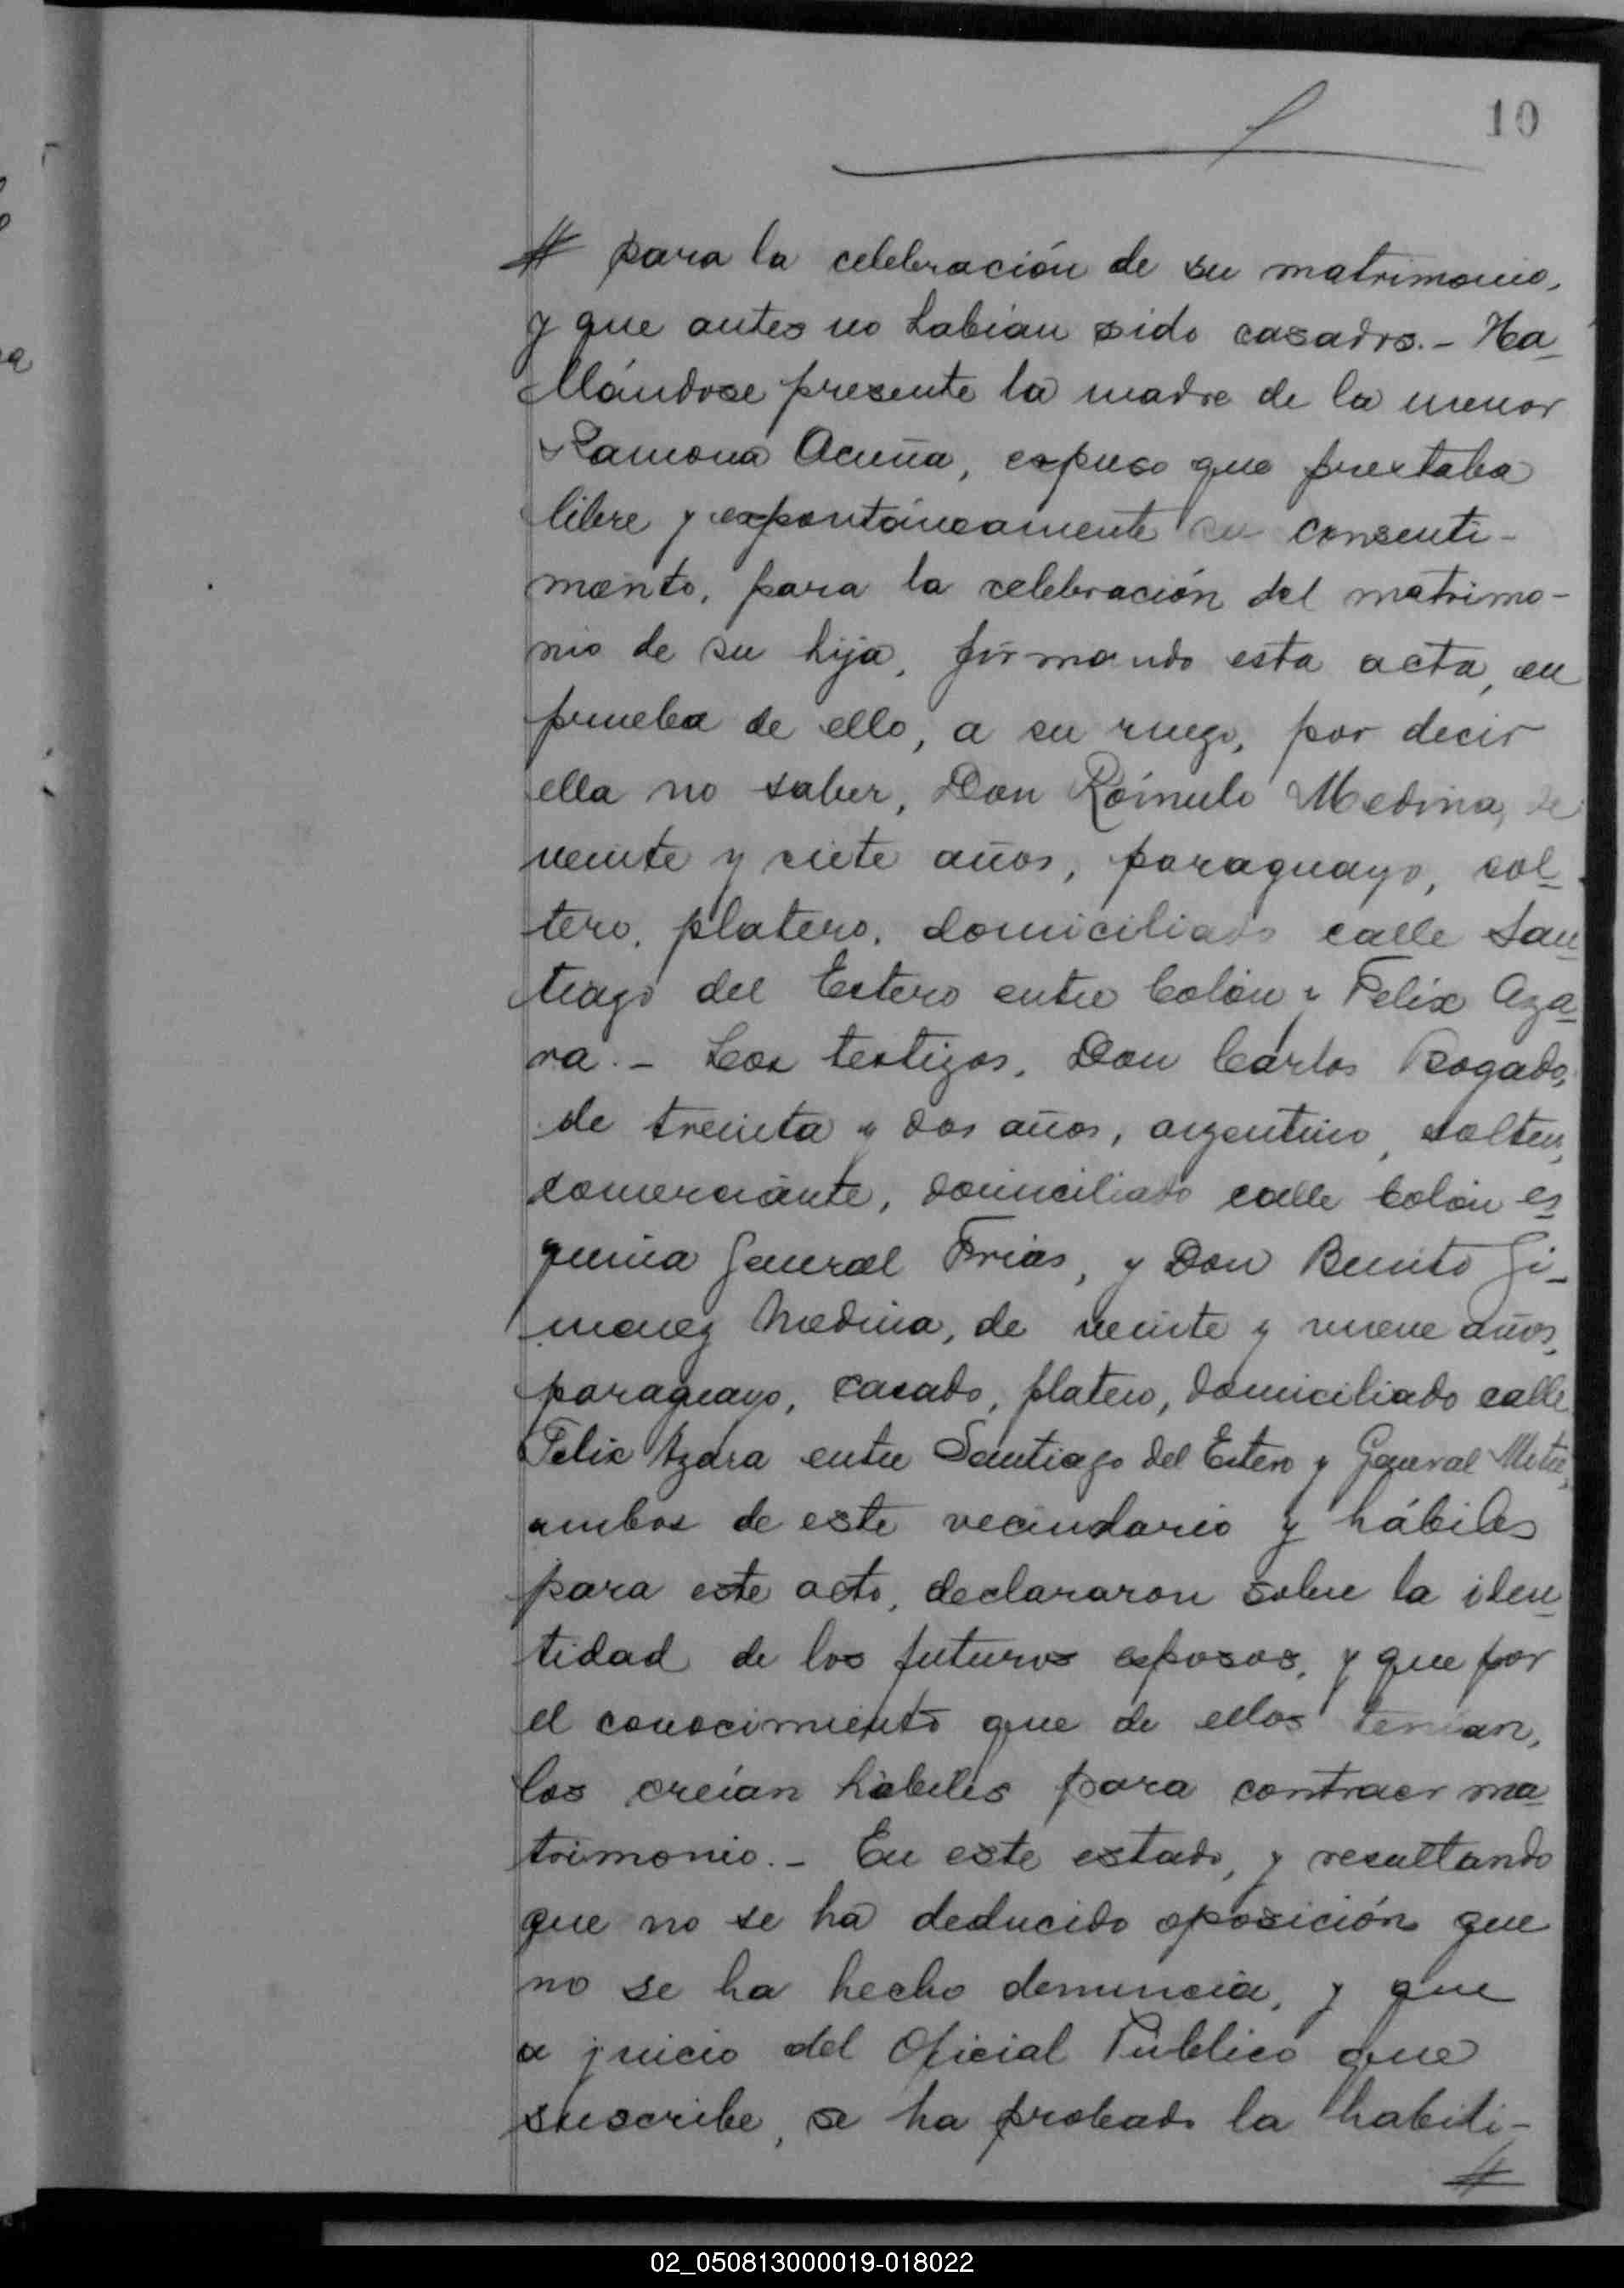 10
# para la celebración de su matrimonio,
y que antes no habían sido casados.- Ha-
llándose presente la madre de la menor
Ramona Acuña, expuso que prestaba
libre y expontáneamente su consenti-
mento, para la celebración del matrimo-
nio de su hija, firmando esta acta, en
prueba de ello, a su ruego, por decir
ella no saber, Don Rómulo Medina, de
veinte y siete años, paraguayo, sol-
tero, platero, domiciliado calle San-
tiago del Estero entre Colón y Felix Aza-
ra.- Los testigos, Don Carlos Bogado,
de treinta y dos años, argentino, soltero,
comerciante, domiciliado calle Colón es-
quina General Frías, y Don Benito Gi-
menez Medina, de veinte y nueve años,
paraguayo, casado, platero, domiciliado calle
Felix Azara entre Santiago del Estero y General Mitre,
ambos de este vecindario y hábiles
para este acto, declararon sobre la iden-
tidad de los futuros esposos, y que por
el conocimiento que de ellos tenían,
los creían hábiles para contraer ma-
trimonio.- En este estado, y resultando
que no se ha deducido oposición que
no se ha hecho denuncia, y que
a juicio del Oficial Público que
suscribe, se ha probado la habili-
#
02_050813000019-018022